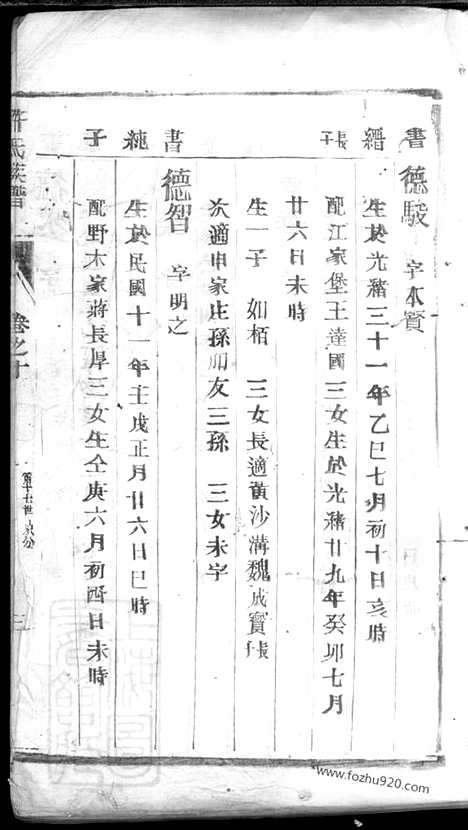 書縉長 德駿 字本賓
生於光緒三十一年乙巳七月初十日亥時
配江家堡王達國三女生於光緒廿九年癸卯七月
廿六日未時
生一子 如栢 三女長適黃沙溝魏成賓長
次適申家庄孫如友三孫 三女未字
書純子 德智 字明之
生於民國十一年壬戌正月廿六日巳時
配野木家蔣長厚三女生仝庚六月初酉日未時
許氏族譜
卷之十
第十七世
三
www.fozhu920.com